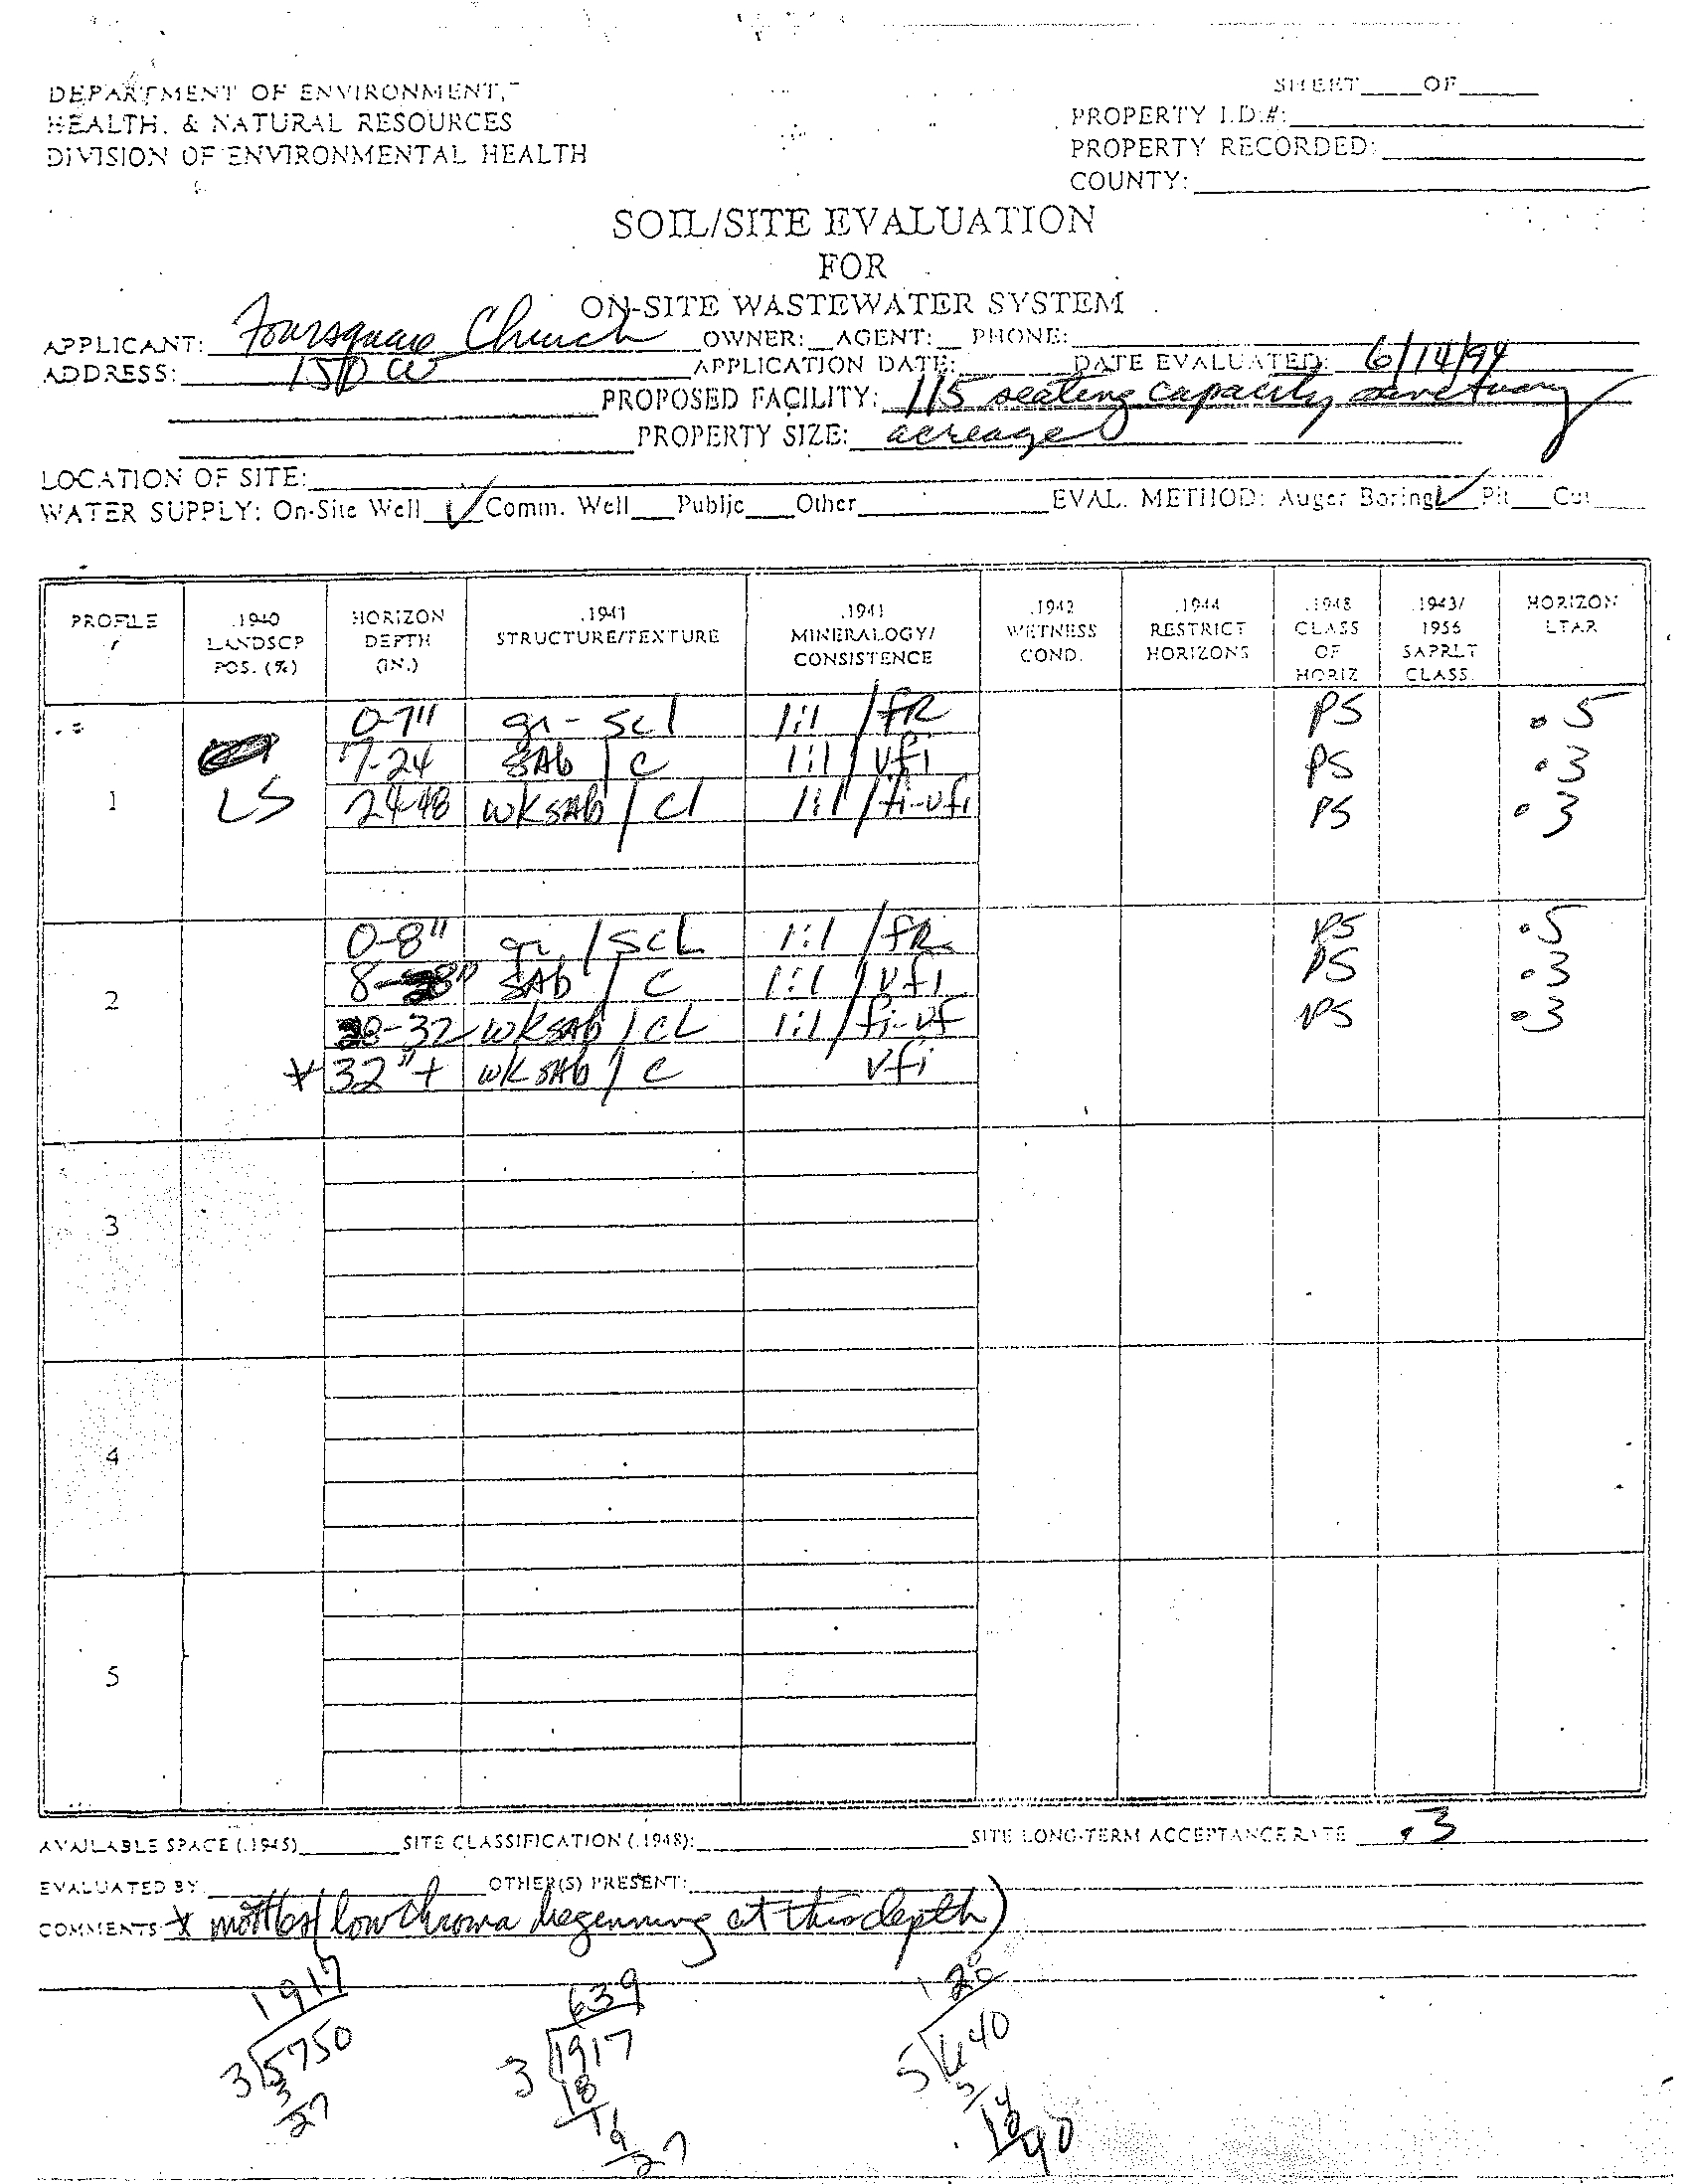 SHEET____OF____
DEPARTMENT OF ENVIRONMENT,
HEALTH, & NATURAL RESOURCES
DIVISION OF ENVIRONMENTAL HEALTH
PROPERTY I.D.#:
PROPERTY RECORDED:
COUNTY:
SOIL/SITE EVALUATION
FOR
ON-SITE WASTEWATER SYSTEM
APPLICANT: Foursquare Church OWNER:__AGENT:__ PHONE:
ADDRESS: 150 W APPLICATION DATE: DATE EVALUATED: 6/14/94
PROPOSED FACILITY: 115 seating capacity sanctuary
PROPERTY SIZE: acreage
LOCATION OF SITE:
WATER SUPPLY: On-Site Well ✓ Comm. Well___Public___Other EVAL. METHOD: Auger Boring ✓ Pit___Cut
PROFILE .1940 LANDSCP POS. (%) HORIZON DEPTH (IN.) .1941 STRUCTURE/TEXTURE .1941 MINERALOGY/ CONSISTENCE .1942 WETNESS COND. .1944 RESTRICT HORIZONS .1948 CLASS OF HORIZ .1943/ 1956 SAPRLT CLASS. HORIZON LTAR
0-7" gr - scl 1:1 / fR PS .5
7-24 SAb / C 1:1 / vfi PS .3
1 LS 24-48 wksab / cl 1:1 / fi-vfi PS .3
0-8" gr / ScL 1:1 / fR PS .5
8-28" SAb / C 1:1 / vfi PS .3
2 28-32 wksab / CL 1:1 / fi-vf PS .3
* 32"+ wk sab / C vfi
3
4
5
AVAILABLE SPACE (.1945) SITE CLASSIFICATION (.1948): SITE LONG-TERM ACCEPTANCE RATE .3
EVALUATED BY OTHER(S) PRESENT:
COMMENTS * mottles (low chroma beginning at this depth)
1917 639 128
3 5750 3 1917 5 640
3 18 5
27 19 14
27 40